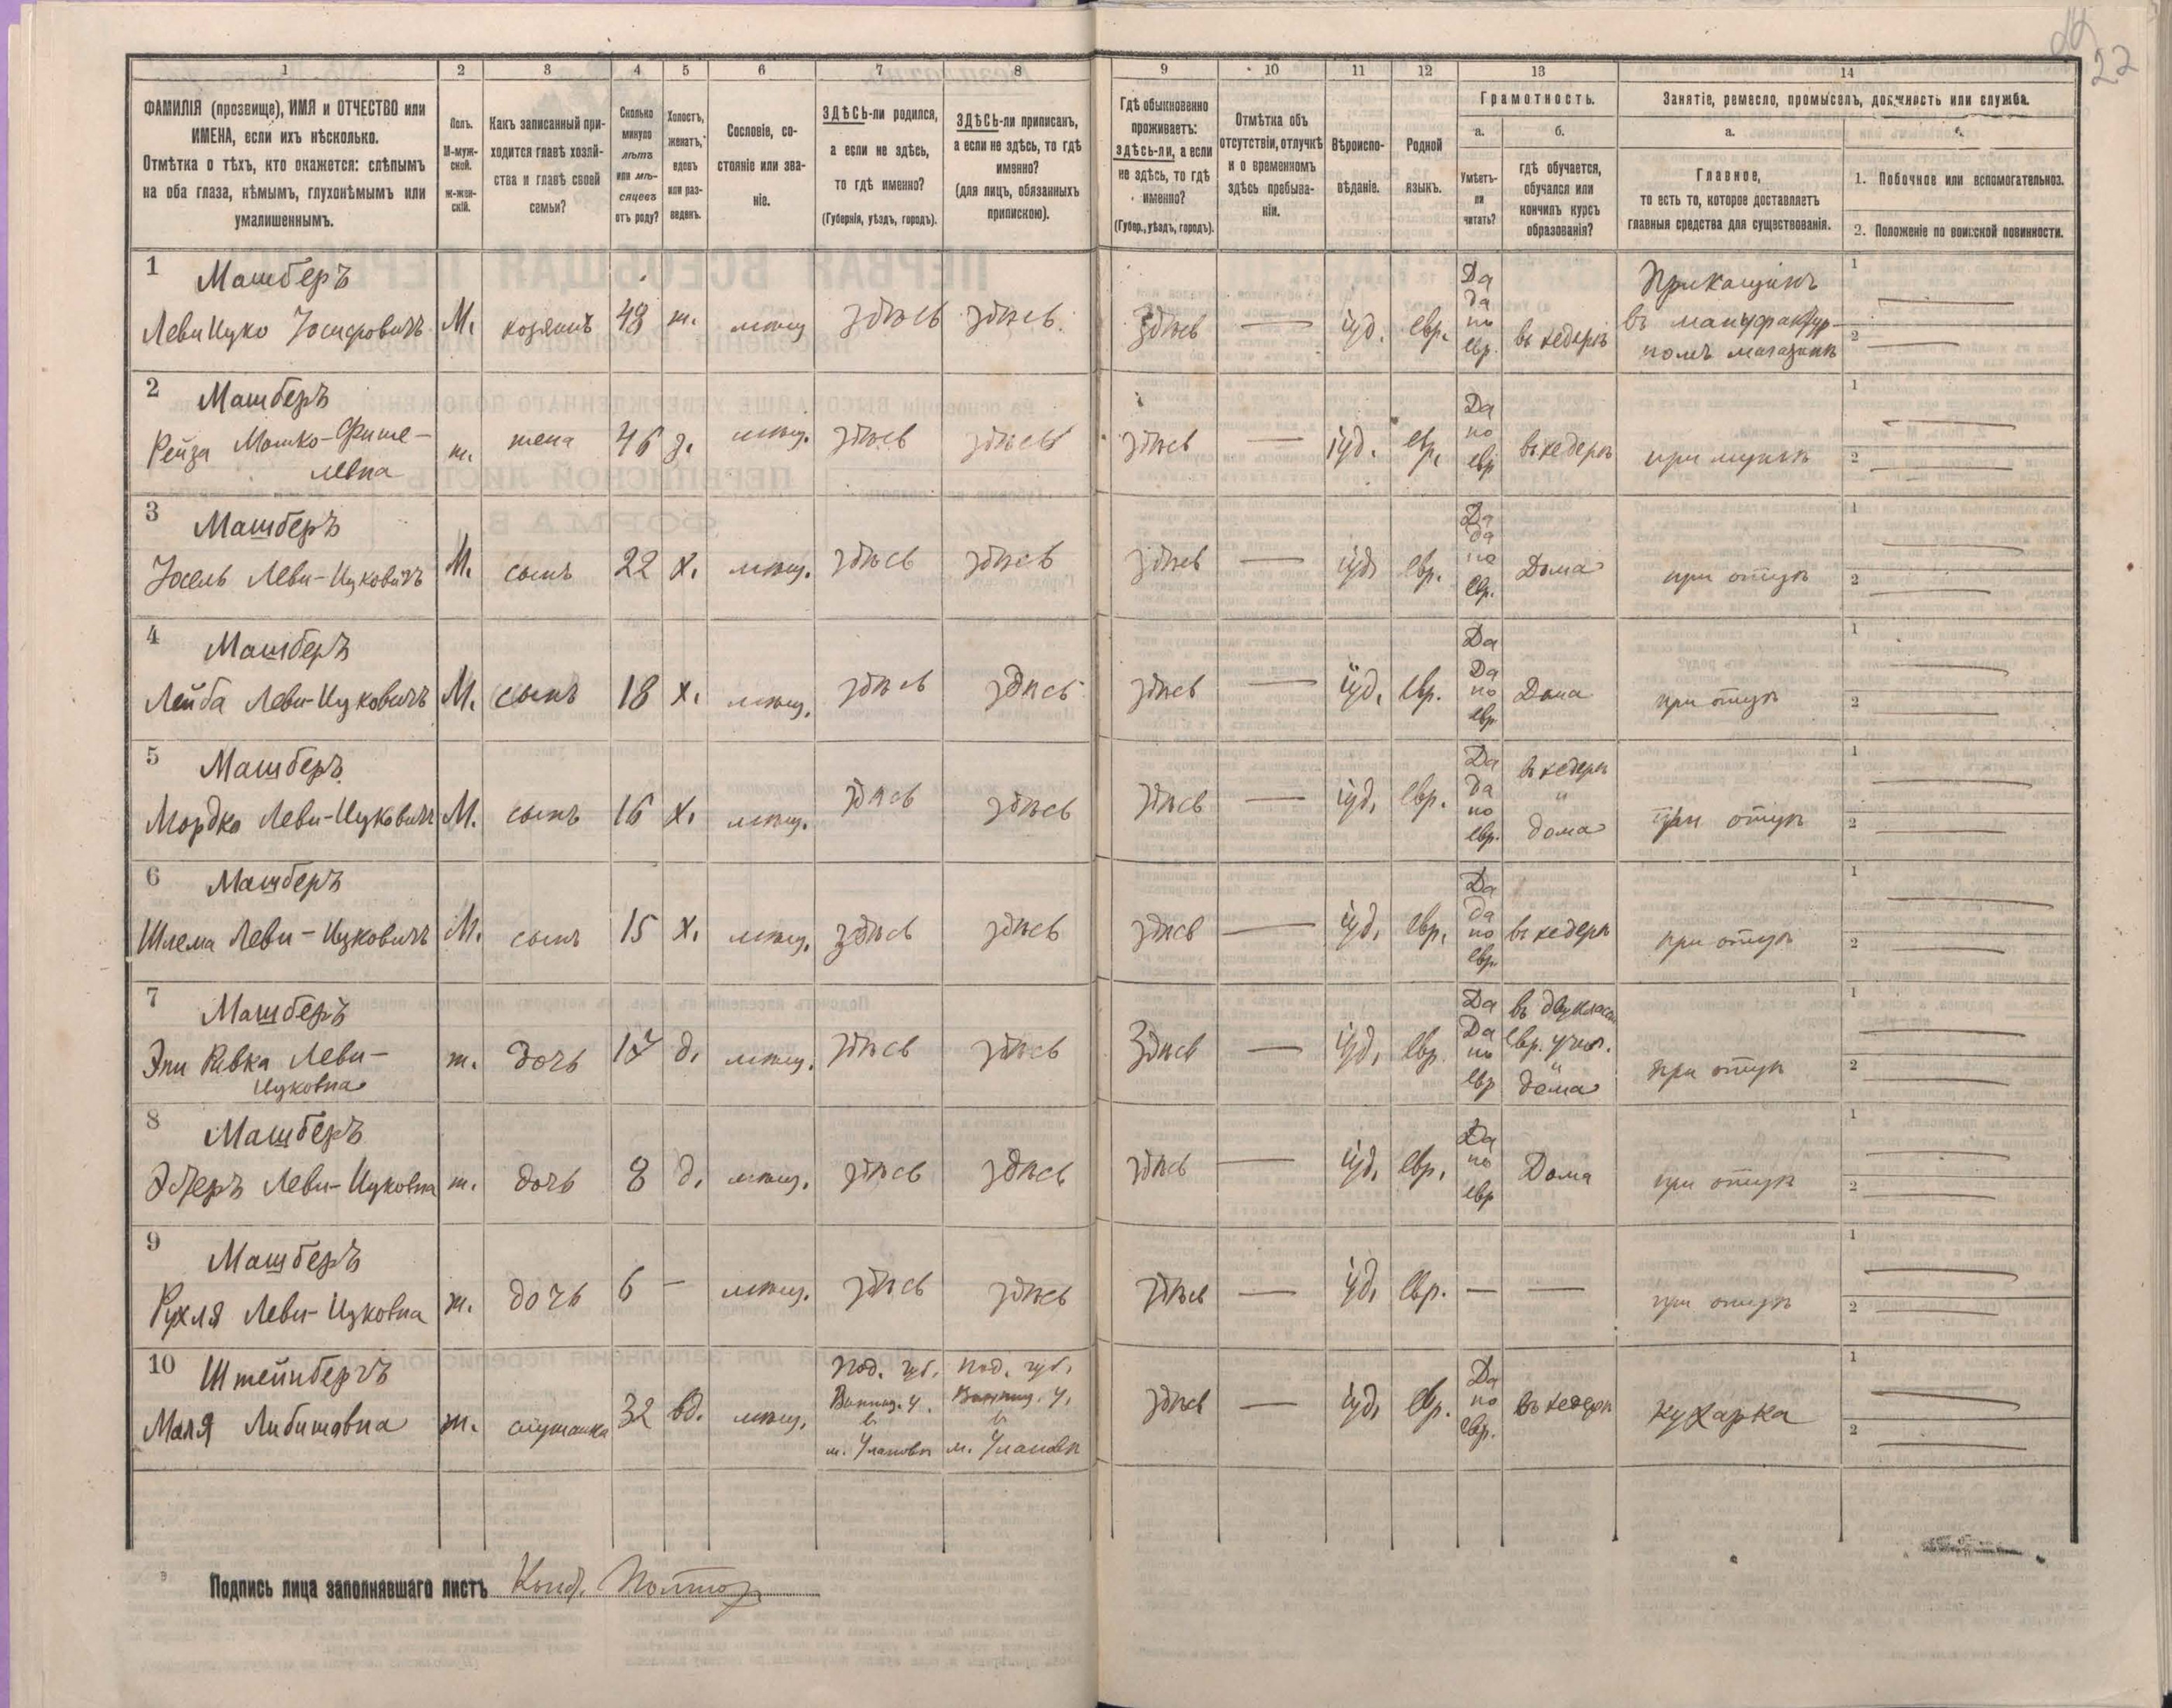 22
1 2 3 4 5 6 7 8 9 10 11 12 13 14
ФАМИЛІЯ (прозвище), ИМЯ и ОТЧЕСТВО или
ИМЕНА, если ихъ нѣсколько.
Отмѣтка о тѣхъ, кто окажется: слѣпымъ
на оба глаза, нѣмымъ, глухонѣмымъ или
умалишеннымъ.
Полъ.
М-муж-
ской.
ж-жен-
скій.
Какъ записанный при-
ходится главѣ хозяй-
ства и главѣ своей
семьи?
Сколько
минуло
лѣтъ
или мѣ-
сяцевъ
отъ роду?
Холостъ,
женатъ,
вдовъ
или раз-
веденъ.
Сословіе, со-
стояніе или зва-
ніе.
ЗДѢСЬ-ли родился,
а если не здѣсь,
то гдѣ именно?
(Губернія, уѣздъ, городъ).
ЗДѢСЬ-ли приписанъ,
а если не здѣсь, то гдѣ
именно?
(для лицъ, обязанныхъ
припискою).
Гдѣ обыкновенно
проживаетъ:
здѣсь-ли, а если
не здѣсь, то гдѣ
именно?
(Губер., уѣздъ, городъ).
Отмѣтка объ
отсутствіи, отлучкѣ
и о временномъ
здѣсь пребыва-
ніи.
Вѣроиспо-
вѣданіе.
Родной
языкъ.
Грамотность.
а.
Умѣетъ-
ли
читать?
б.
гдѣ обучается,
обучался или
кончилъ курсъ
образованія?
Занятіе, ремесло, промыселъ, должность или служба.
а.
Главное,
то есть то, которое доставляетъ
главныя средства для существованія.
1. Побочное или вспомогательное.
2. Положеніе по воинской повинности.
1 Машберъ
Леви Ицко Іосифовичъ М. хозяинъ 48 ж. мѣщ здѣсь здѣсь. Здѣсь — іуд. евр. Да да по евр. въ хедерѣ Прикащикъ въ мануфактур- номъ магазинѣ 1 — 2 —
2 Машберъ
Рейза Мошко-Фише-
левна ж. жена 46 з. мѣщ. здѣсь здѣсь здѣсь — іуд. евр. Да по евр въ хедерѣ при мужѣ 1 — 2 —
3 Машберъ
Іосель Леви-Ицковичъ М. сынъ 22 х. мѣщ. здѣсь здѣсь здѣсь — іуд евр. Да да по евр. Дома при отцѣ 1 — 2 —
4 Машберъ
Лейба Леви-Ицковичъ М. сынъ 18 х. мѣщ. здѣсь здѣсь здѣсь — іуд. евр. Да Да по евр Дома при отцѣ 1 — 2 —
5 Машберъ
Мордко Леви-Ицковичъ М. сынъ 16 х. мѣщ. здѣсь здѣсь здѣсь — іуд. евр. Да да по евр. въ хедерѣ и дома при отцѣ 1 — 2 —
6 Машберъ
Шлема Леви-Ицковичъ М. сынъ 15 х. мѣщ. здѣсь здѣсь здѣсь — іуд. евр. Да да по евр. въ хедерѣ при отцѣ 1 — 2 —
7 Машберъ
Эни Ривка Леви-
Ицковна ж. дочь д. мѣщ. здѣсь здѣсь Здѣсь — іуд. евр. Да Да по евр въ двуклас. евр. учил. и дома при отцѣ 1 — 2 —
8 Машберъ
Леви-Ицковна ж. дочь 8 д. мѣщ. здѣсь здѣсь здѣсь — іуд. евр. Да по евр Дома при отцѣ 1 — 2 —
9 Машберъ
Рухля Леви-Ицковна ж. дочь 6 — мѣщ. здѣсь здѣсь здѣсь — іуд. евр. — — при отцѣ 1 — 2 —
10 Штейнбергъ
Маля Либишовна ж. служанка 32 вд. мѣщ. Под. губ. Винниц. у. в м. Улановѣ Под. губ. Винниц. у. в м. Улановѣ здѣсь — іуд. евр. Да по евр. въ хедерѣ кухарка 1 — 2 —
Подпись лица заполнявшаго листъ